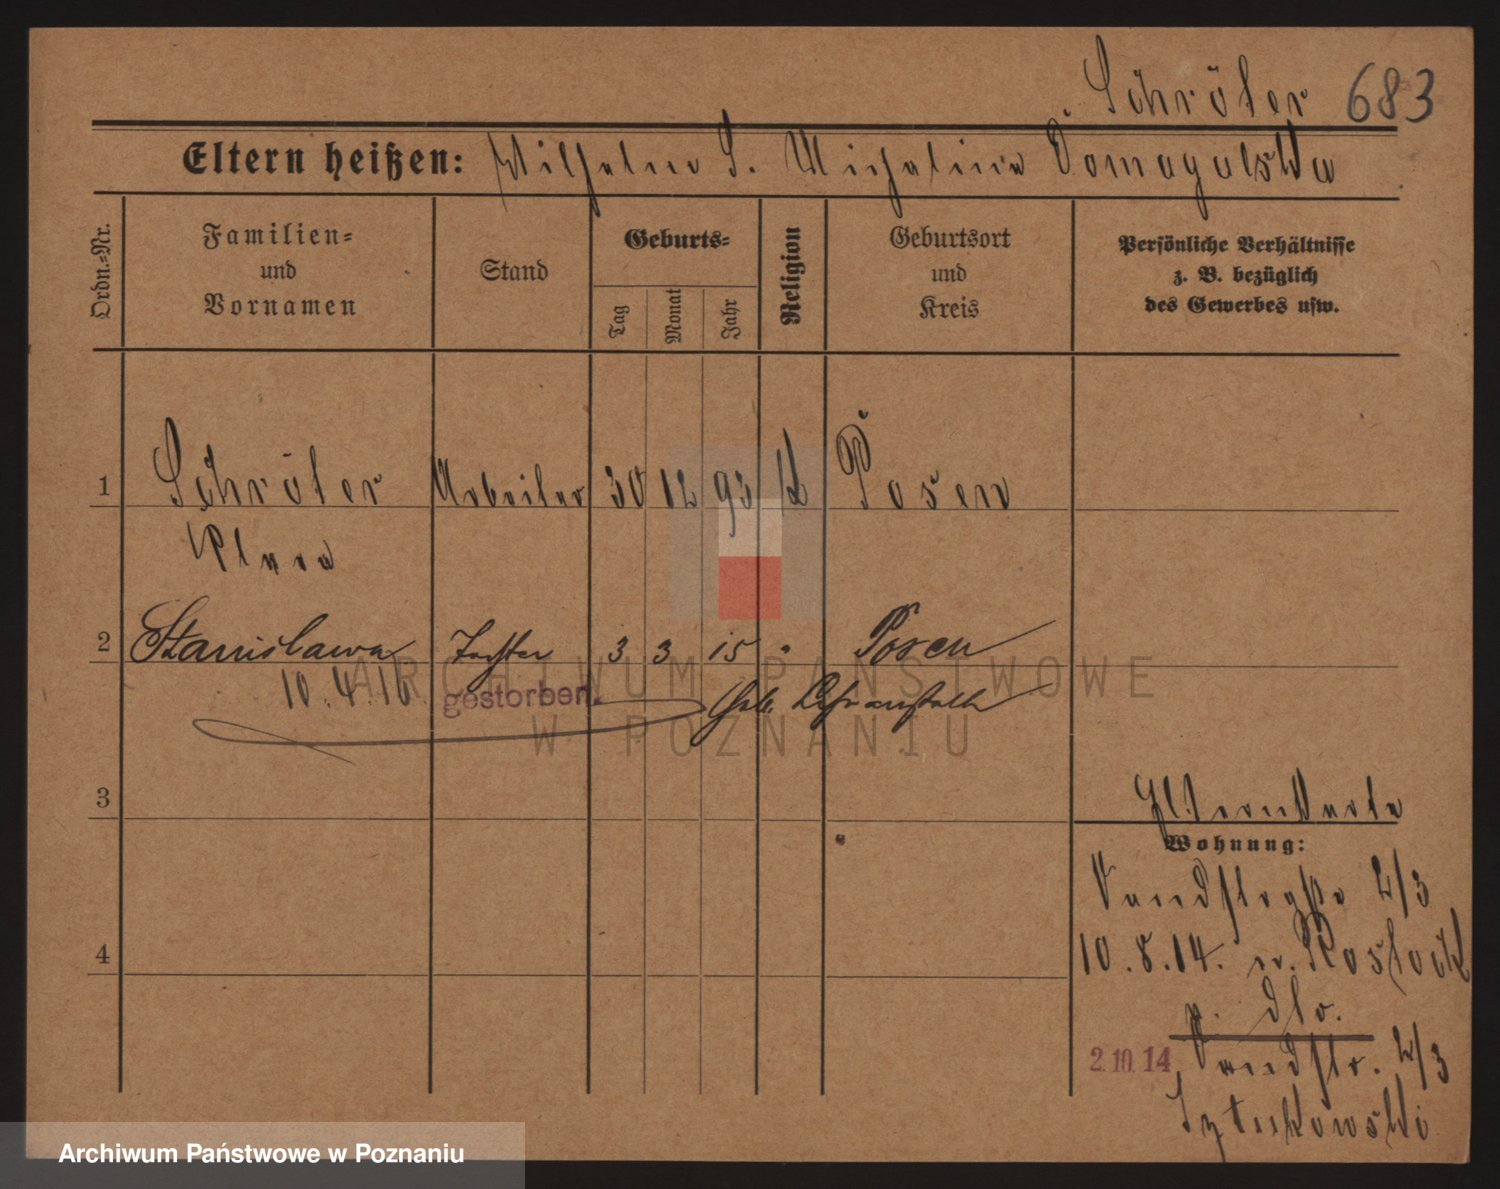 Schröter 683
Eltern heißen: Wilhelm S. Michalina Domagalska
Ordn.-Nr.
Familien- und Vornamen
Stand
Geburts-
Tag
Monat
Jahr
Religion
Geburtsort und Kreis
Persönliche Verhältnisse z. B. bezüglich des Gewerbes usw.
1 Schröter Arbeiter 30 12 93 k Posen
2 Stanislawa Tochter 3 3 15 " Posen
10.4.16 gestorben. Geb. Lehranstalt
3
4
Elternkarte
Wohnung:
Sandstraße 2/3
10.8.14. n. Rostock
2.10.14 Sandstr. 2/3
Sztukowski
ARCHIWUM PAŃSTWOWE
W POZNANIU
Archiwum Państwowe w Poznaniu